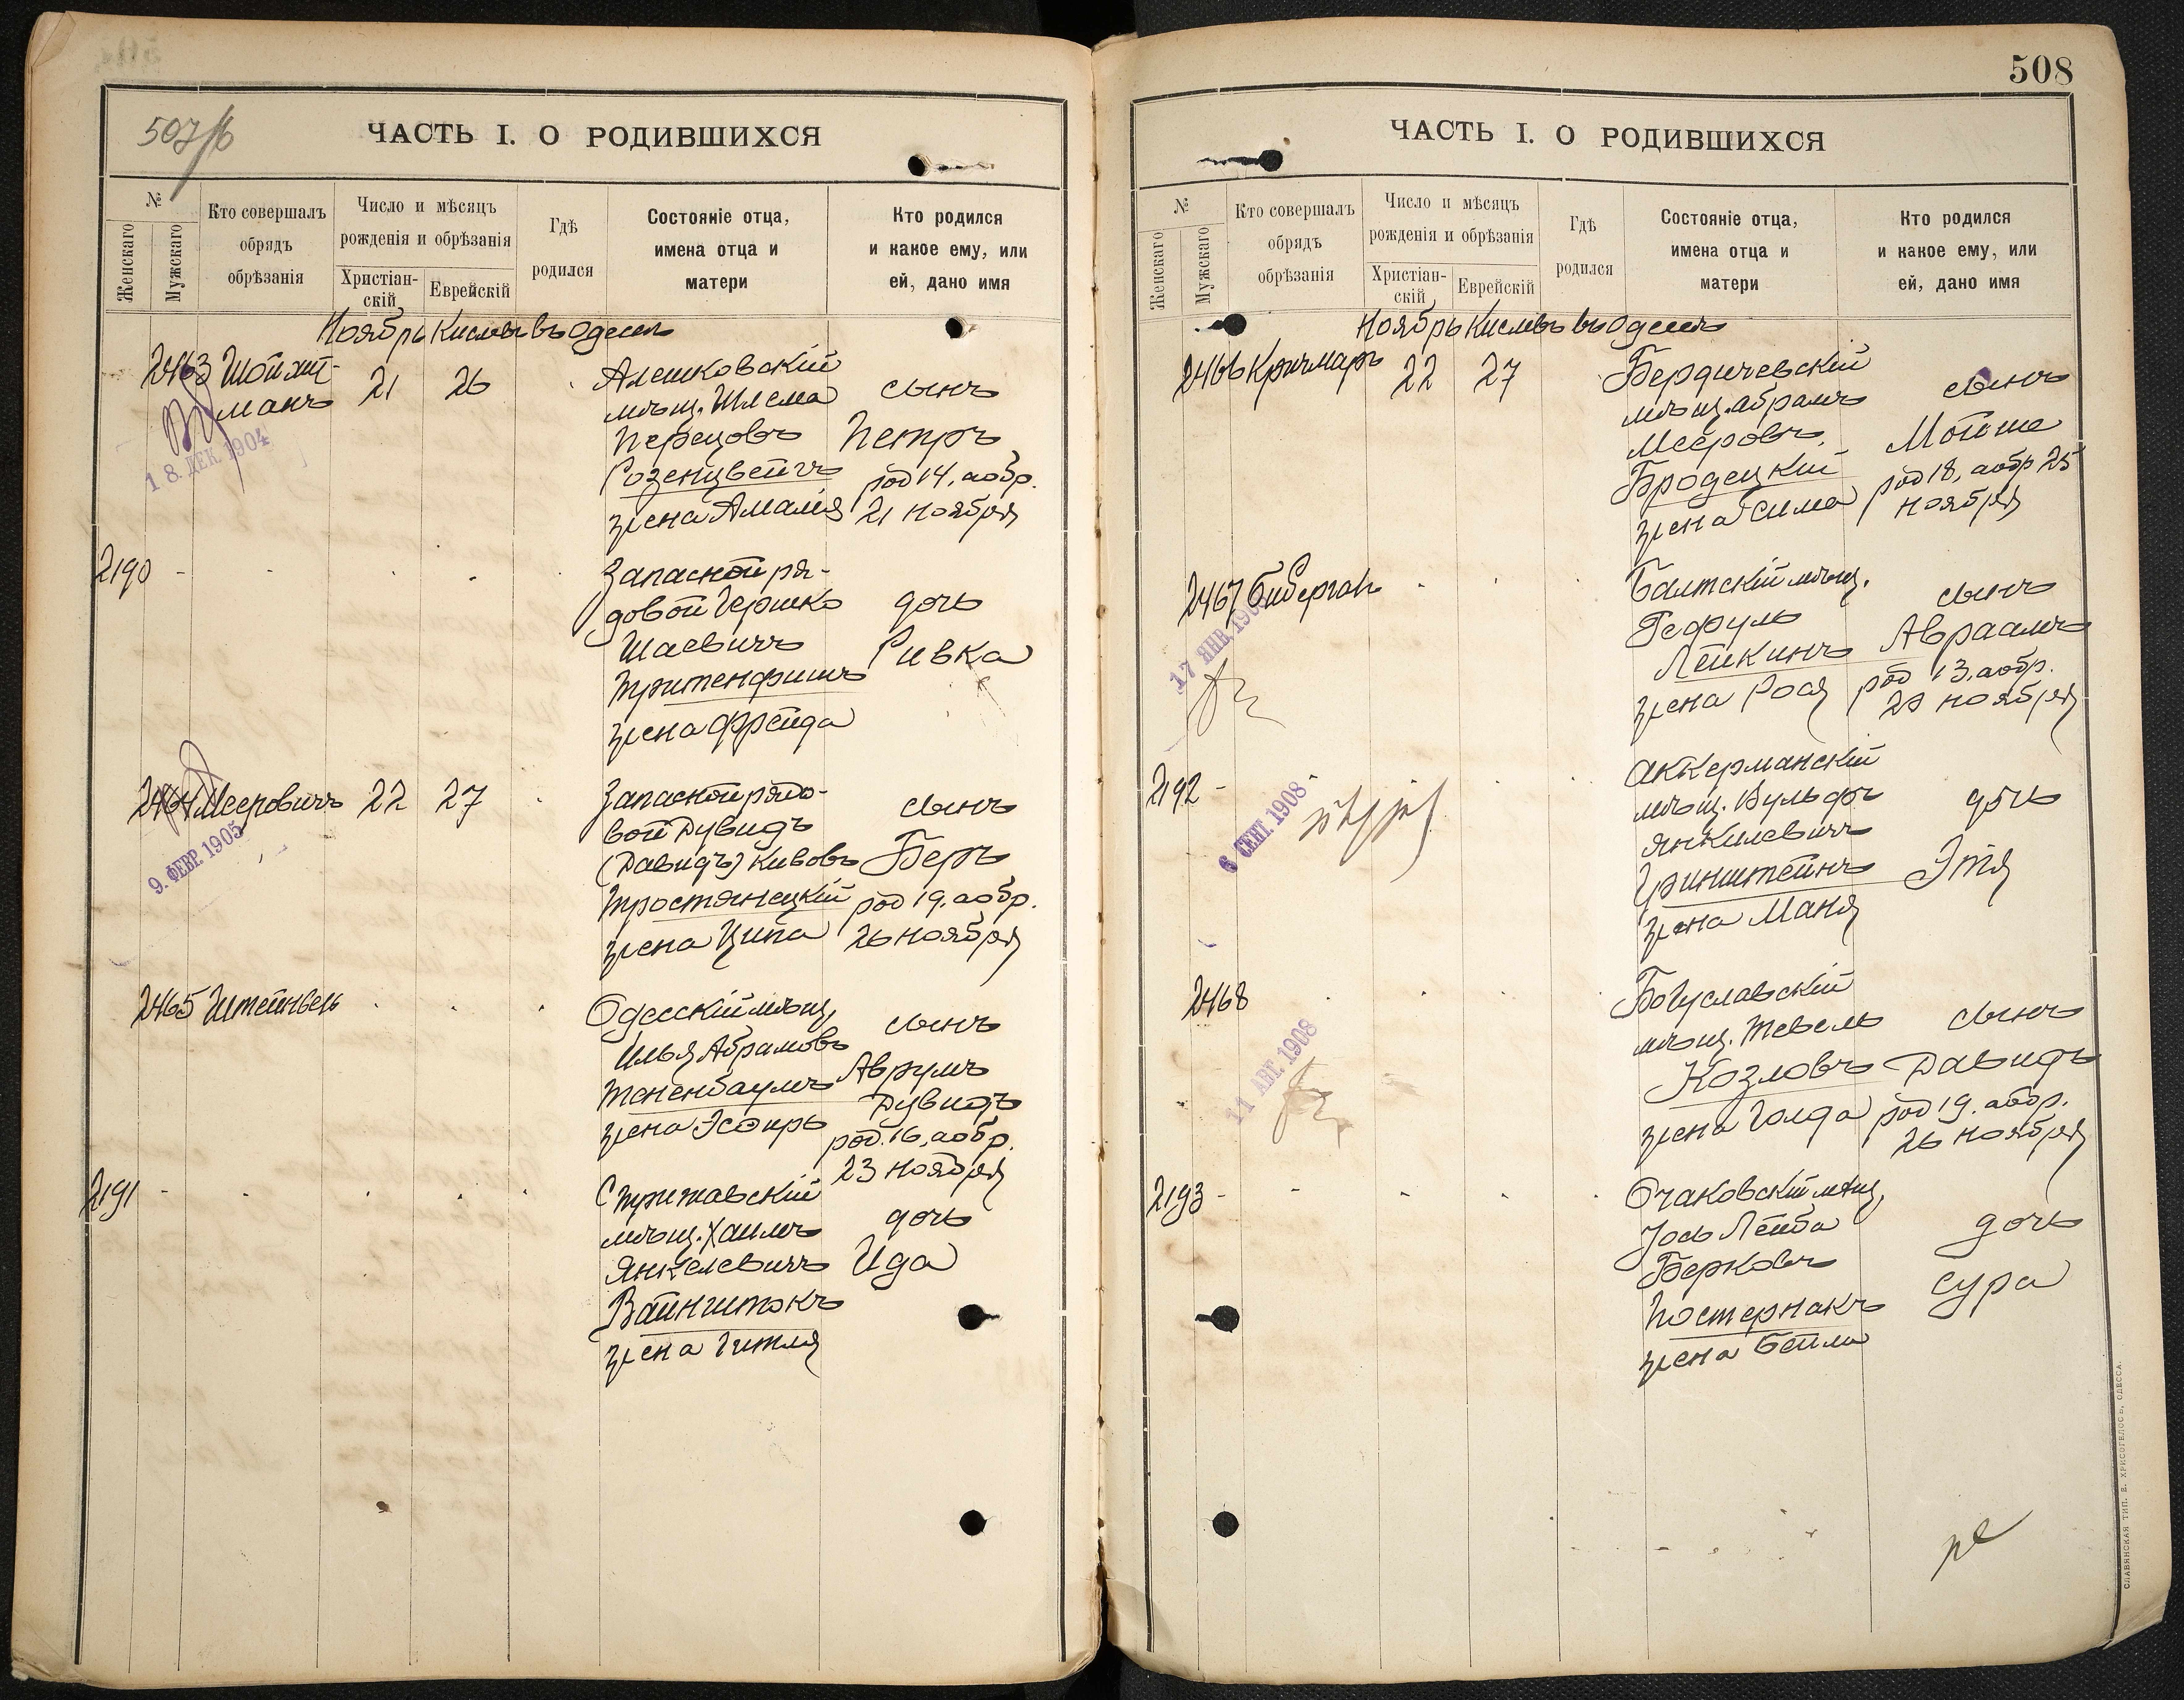 507/б
ЧАСТЬ I. О РОДИВШИХСЯ
№
Женскаго
Мужскаго
Кто совершалъ
обрядъ
обрѣзанія
Число и мѣсяцъ
рожденія и обрѣзанія
Христіан-
скій
Еврейскій
Гдѣ
родился
Состояніе отца,
имена отца и
матери
Кто родился
и какое ему, или
ей, дано имя
Ноябрь Кислевъ въ Одессѣ
2463
манъ
21
26
Алешковскій
мѣщ. Шлема
Перецовъ
Розенцвейгъ
жена Амалія
сынъ
Петръ
род 14, а обр.
21 ноября
18. ДЕК. 1904
2190
Запасной ря-
довой Гершко
Шаевичъ
Тритенфишъ
жена Фрейда
дочь
Ривка
2464 Меерoвичъ
22
27
Запасной рядо-
вой Дувидъ
(Давидъ) Кивовъ
Тростянецкій
жена Ципа
сынъ
Беръ
род 19. а обр.
26 ноября
9. ФЕВР. 1905
2465 Штейнвель
Одесскій мѣщ.
Илья Абрамовъ
Тененбаумъ
жена Эсѳирь
сынъ
Аврумъ
Дувидъ
род. 16, а обр.
23 ноября
2191
Стрижавскій
мѣщ. Хаимъ
Янкелевичъ
Вайнштокъ
жена Гитля
дочь
Ида
508
ЧАСТЬ I. О РОДИВШИХСЯ
№
Женскаго
Мужскаго
Кто совершалъ
обрядъ
обрѣзанія
Число и мѣсяцъ
рожденія и обрѣзанія
Христіан-
скій
Еврейскій
Гдѣ
родился
Состояніе отца,
имена отца и
матери
Кто родился
и какое ему, или
ей, дано имя
Ноябрь Кислевъ въ Одессѣ
2466 Кричмаръ
22
27
Бердичевскій
мѣщ. Абрамъ
Мееровъ
Бродецкій
жена Сима
сынъ
Мойше
род 18, а обр 25
ноября
2467
Балтскій мѣщ.
Лейкинъ
жена Рося
сынъ
Авраамъ
род 13, а обр.
20 ноября
17 ЯНВ. 190
2192
Аккерманскій
мѣщ. Вульфъ
Янкилевичъ
Гринштейнъ
жена Маня
дочь
Этя
6 СЕНТ. 1908
2468
Богуславскій
мѣщ. Тевель
Козловъ
жена Голда
сынъ
Давидъ
род 19. а обр.
26 ноября
11 АВГ. 1908
2193
Очаковскій мѣщ.
Іось Лейба
Берковъ
Постернакъ
жена Бейла
дочь
Сура
СЛАВЯНСКАЯ ТИП. Е. ХРИСОГЕЛОСЪ, ОДЕССА.